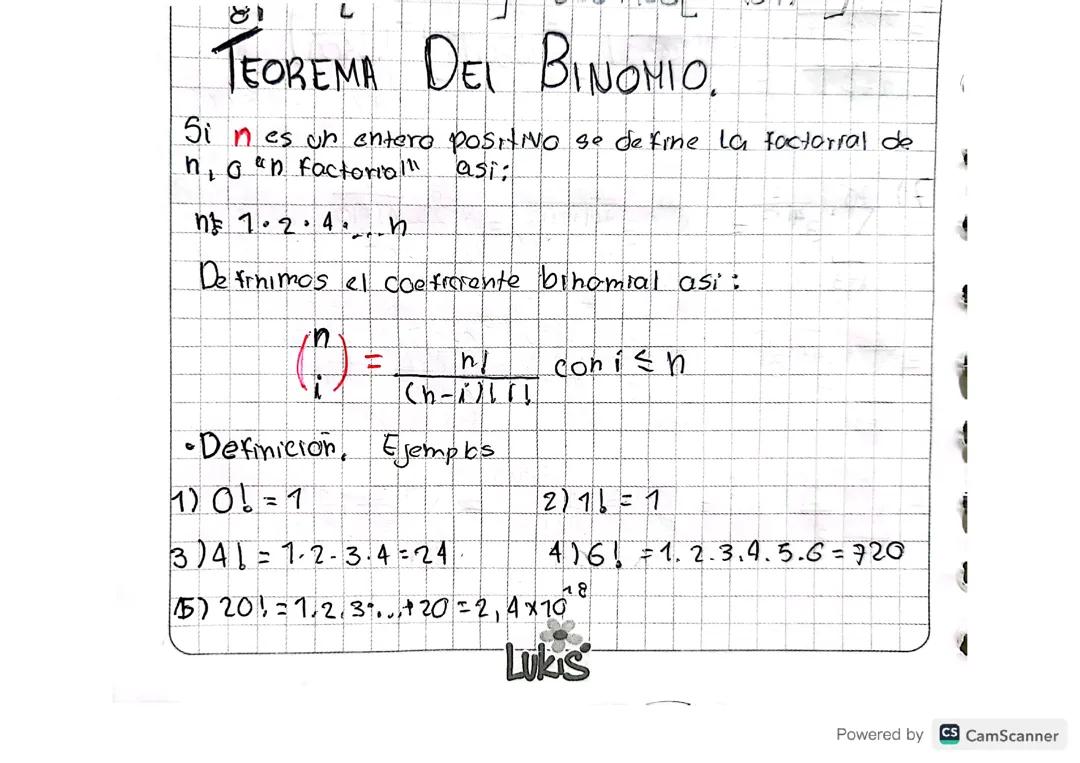 TEOREMA DEl BINOMIO.
Si n es un entero positivo se define la factorial de
n, o "n factorial" asi:
n! = 1·2·4·...n
Definimos el coeficiente binomial asi:
(n i) = n! / (n-i)! i! con i ≤ n
•Definición. Ejemplos
1) 0! = 1 2) 1! = 1
3) 4! = 1·2·3·4 = 24. 4) 6! = 1.2.3.4.5.6 = 720
5) 20! = 1.2.3·...+20 = 2,4x10^18
LUKIS
Powered by CS CamScanner